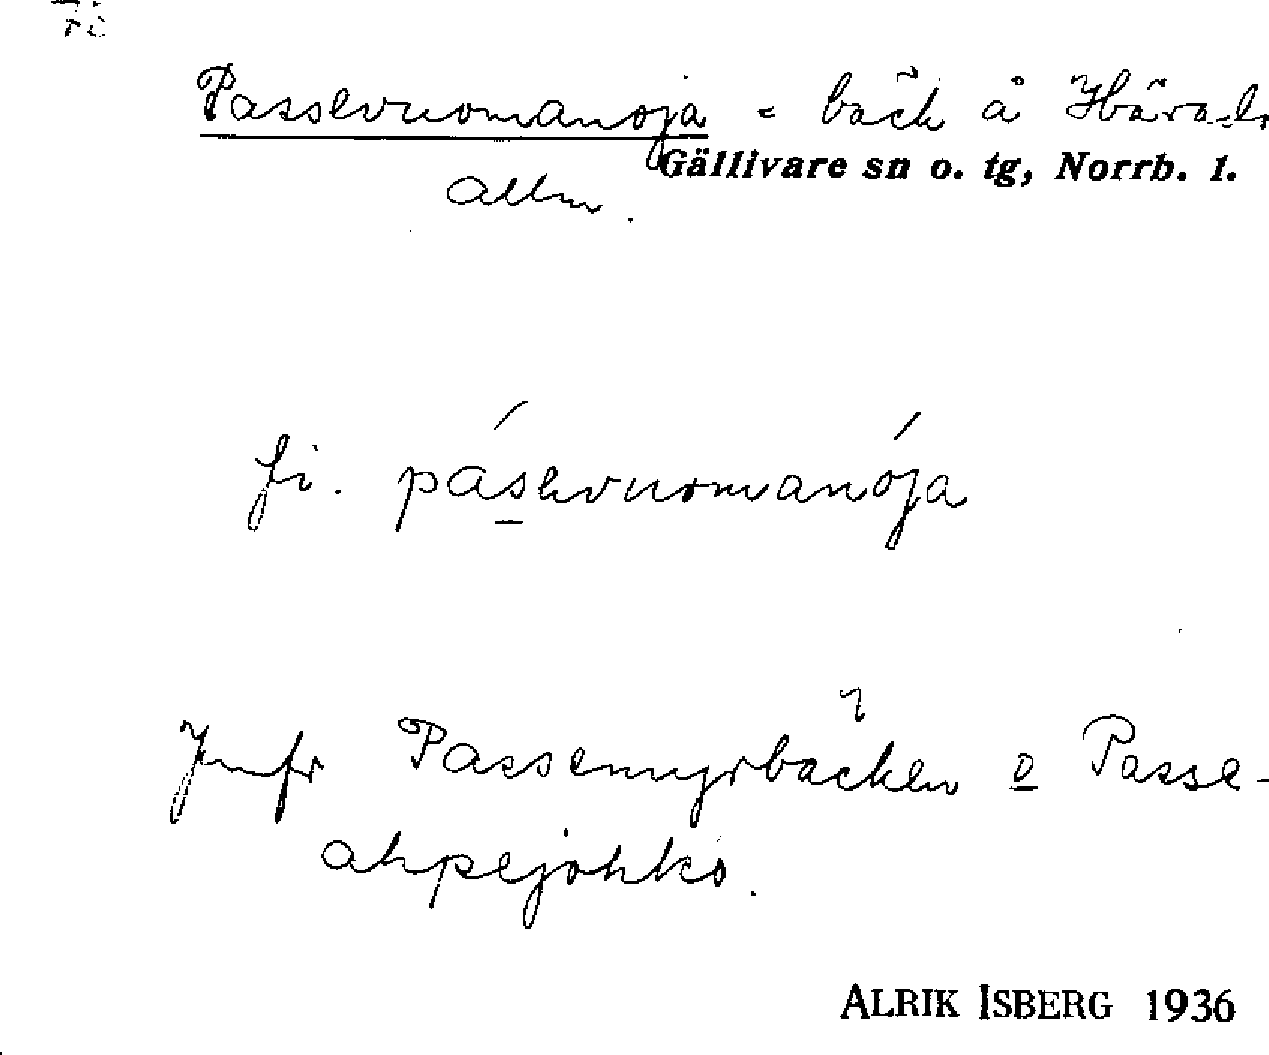 Fi
Passevuomanoja = bäck å Härads
Gällivare sn o. tg, Norrb. l.
allm.
fi. pásevuomanója
Jmfr Passemyrbäcken o Passe-
ahpejohko.
ALRIK ISBERG 1936